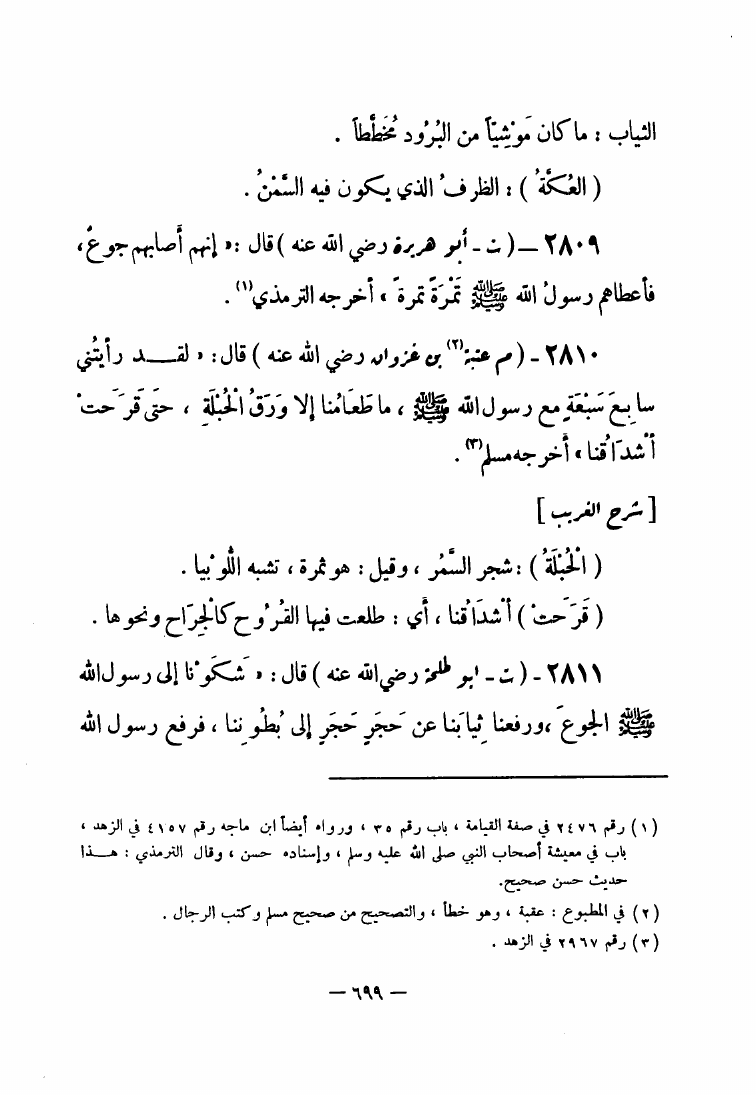 الثياب : ما كان مَوْشِيّاً من البُرُود مُخَطَّطاً .
( العُكَّةُ ) : الظرفُ الذي يكون فيه السَّمْنُ .
٢٨٠٩ – ( ت - أبو هريرة رضي الله عنه ) قال : « إنهم أصابهم جوعٌ ،
فأعطاهم رسولُ الله ﷺ تَمْرَةً تمرةً » أخرجه الترمذي(١) .
٢٨١٠ - ( م عتبة(٢) بن غزوان رضي الله عنه ) قال : « لقد رأيتُني
سابِعَ سَبْعَةٍ مع رسول الله ﷺ ، ما طَعَامُنا إلا وَرَقُ الْحُبْلَةِ ، حتى قَرَحَتْ
أشْدَاقُنا » أخرجه مسلم(٣) .
[ شرح الغريب ]
( الْحُبْلَةُ ) : شجر السَّمُر ، وقيل : هو ثمرة ، تشبه اللُّوْبيا .
( قَرَحَتْ ) أشْدَاقُنا ، أي : طلعت فيها القُرُوح كالْجِرَاح ونحوها .
٢٨١١ - ( ت - أبو طلحة رضي الله عنه ) قال : « شَكَوْنا إلى رسول الله
ﷺ الجوعَ ، ورفعنا ثِيابَنا عن حَجَرٍ حَجَرٍ إلى بُطُونِنا ، فرفع رسول الله
(١) رقم ٢٤٧٦ في صفة القيامة ، باب رقم ٣٥ ، ورواه أيضاً ابن ماجه رقم ٤١٥٧ في الزهد ،
باب في معيشة أصحاب النبي صلى الله عليه وسلم ، وإسناده حسن ، وقال الترمذي : هذا
حديث حسن صحيح.
(٢) في المطبوع : عقبة ، وهو خطأ ، والتصحيح من صحيح مسلم وكتب الرجال .
(٣) رقم ٢٩٦٧ في الزهد .
– ٦٩٩ –